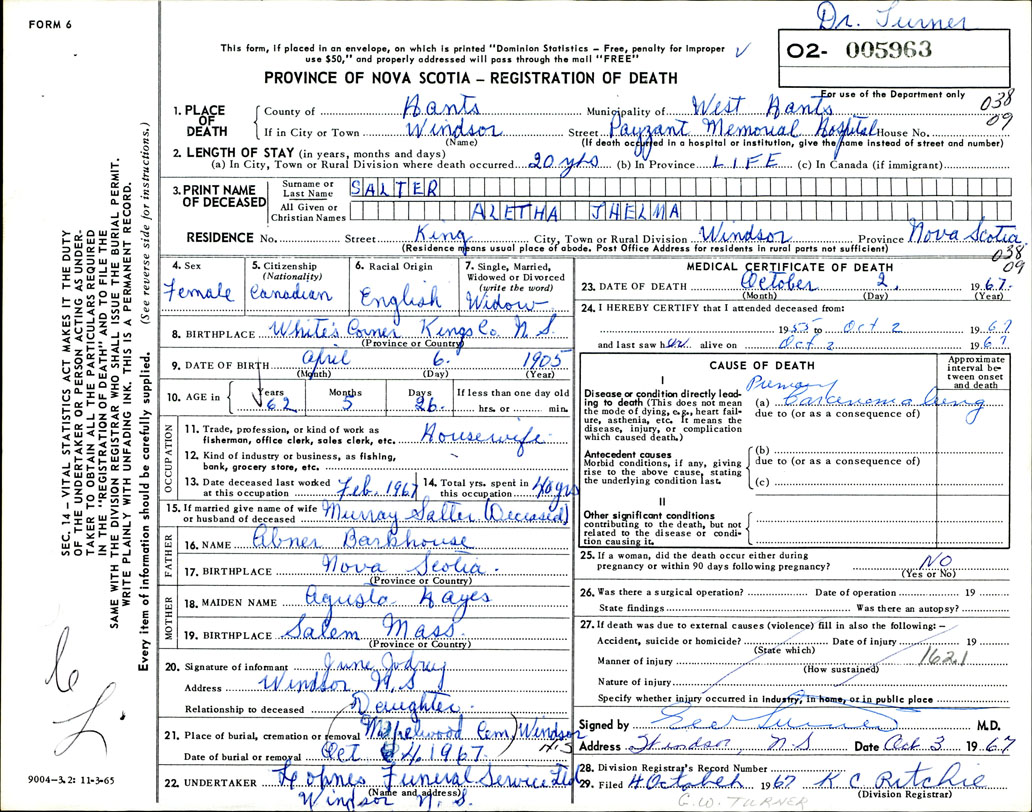 Dr. Turner
FORM 6
This form, if placed in an envelope, on which is printed "Dominion Statistics – Free, penalty for improper
use $50," and properly addressed will pass through the mail "FREE"
02- 005963
For use of the Department only
PROVINCE OF NOVA SCOTIA – REGISTRATION OF DEATH
038
09
1. PLACE OF DEATH
County of Hants Municipality of West Hants
If in City or Town Windsor Street Payzant Memorial Hospital House No.
(Name) (If death occurred in a hospital or institution, give the name instead of street and number)
2. LENGTH OF STAY (in years, months and days)
(a) In City, Town or Rural Division where death occurred 20 yrs (b) In Province LIFE (c) In Canada (if immigrant)
3. PRINT NAME OF DECEASED
Surname or Last Name SALTER
All Given or Christian Names ALETHA THELMA
RESIDENCE No. Street King City, Town or Rural Division Windsor Province Nova Scotia
(Residence means usual place of abode. Post Office Address for residents in rural parts not sufficient)
038
09
4. Sex Female
5. Citizenship (Nationality) Canadian
6. Racial Origin English
7. Single, Married, Widowed or Divorced (write the word) Widow
8. BIRTHPLACE White's Corner Kings Co. N.S.
(Province or Country)
9. DATE OF BIRTH April 6. 1905
(Month) (Day) (Year)
10. AGE in Years 62 Months 5 Days 26 If less than one day old hrs. or min.
OCCUPATION
11. Trade, profession, or kind of work as fisherman, office clerk, sales clerk, etc. Housewife
12. Kind of industry or business, as fishing, bank, grocery store, etc.
13. Date deceased last worked at this occupation Feb. 1967 14. Total yrs. spent in this occupation 40 yrs
15. If married give name of wife or husband of deceased Murray Salter (Deceased)
FATHER
16. NAME Abner Barkhouse
17. BIRTHPLACE Nova Scotia.
(Province or Country)
MOTHER
18. MAIDEN NAME Agusta Hayes
19. BIRTHPLACE Salem Mass.
(Province or Country)
20. Signature of informant June
Address Windsor N.S
Relationship to deceased Daughter
21. Place of burial, cremation or removal Maplewood Cem. Windsor N.S
Date of burial or removal Oct 4 1967.
22. UNDERTAKER Funeral Service Ltd
(Name and address)
Windsor N.S.
MEDICAL CERTIFICATE OF DEATH
23. DATE OF DEATH October 2, 1967.
(Month) (Day) (Year)
24. I HEREBY CERTIFY that I attended deceased from:
1955 to Oct 2 1967
and last saw her alive on Oct 2 1967
CAUSE OF DEATH
Approximate interval between onset and death
I
Disease or condition directly leading to death (This does not mean the mode of dying, e.g., heart failure, asthenia, etc. It means the disease, injury, or complication which caused death.)
Primary
(a) Carcinoma lung
due to (or as a consequence of)
Antecedent causes
Morbid conditions, if any, giving rise to the above cause, stating the underlying condition last.
(b)
due to (or as a consequence of)
(c)
II
Other significant conditions
contributing to the death, but not related to the disease or condition causing it.
25. If a woman, did the death occur either during pregnancy or within 90 days following pregnancy? NO
(Yes or No)
26. Was there a surgical operation? Date of operation 19
State findings Was there an autopsy?
27. If death was due to external causes (violence) fill in also the following: –
Accident, suicide or homicide? Date of injury 19
(State which)
Manner of injury 162.1
(How sustained)
Nature of injury
Specify whether injury occurred in industry, in home, or in public place
Signed by Geo Turner M.D.
Address Windsor, N.S Date Oct 3 1967
28. Division Registrar's Record Number
29. Filed 4 October 1967 K C Ritchie
(Division Registrar)
G.W. TURNER
SEC. 14 – VITAL STATISTICS ACT MAKES IT THE DUTY
OF THE UNDERTAKER OR PERSON ACTING AS UNDER-
TAKER TO OBTAIN ALL THE PARTICULARS REQUIRED
IN THE "REGISTRATION OF DEATH" AND TO FILE THE
SAME WITH THE DIVISION REGISTRAR WHO SHALL ISSUE THE BURIAL PERMIT.
WRITE PLAINLY WITH UNFADING INK. THIS IS A PERMANENT RECORD.
Every item of information should be carefully supplied. (See reverse side for instructions.)
9004-3.2: 11-3-65